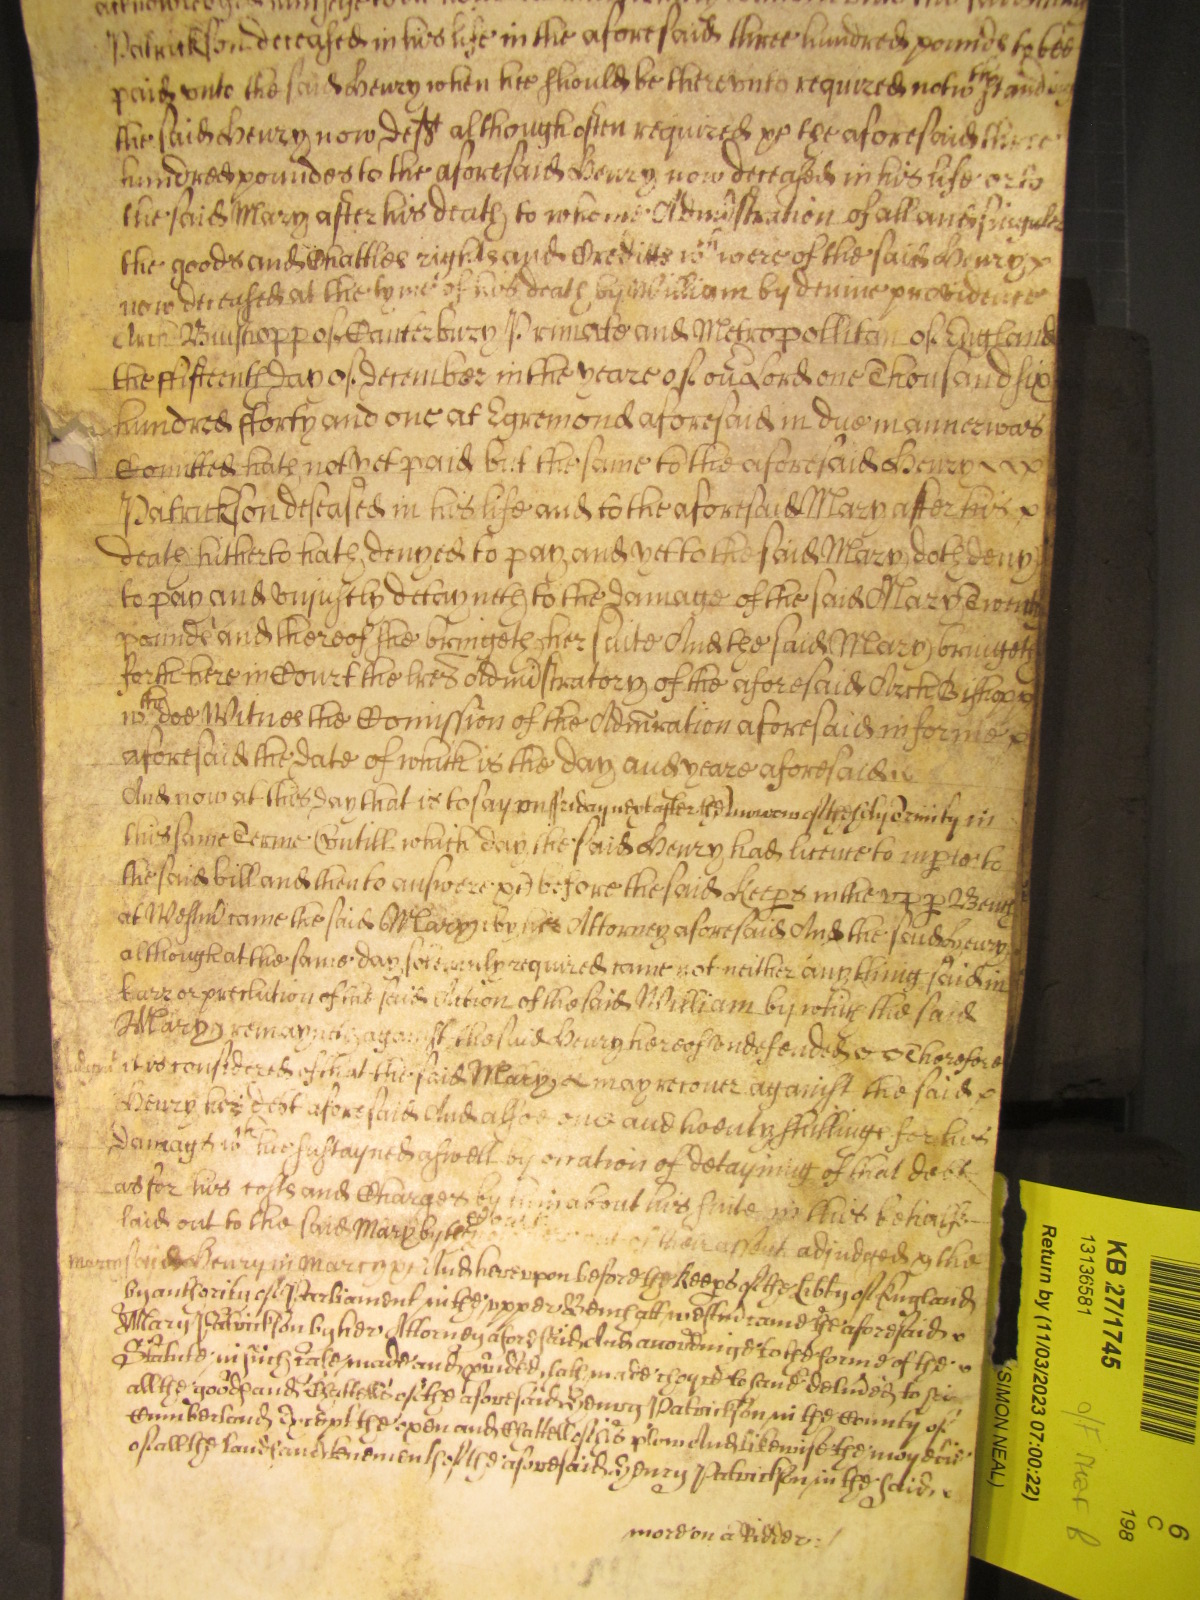 Patrickson deceased in his life in the aforesaid three hundred pounds to bee
paid vnto the said Henry when hee should be therevnto required notwthstanding
the said Henry now Deft although often required xx the aforesaid three
hundred poundes to the aforesaid Henry now deceased in his life or to
the said Mary after his death to whome Admistration of all and singuler
the goods and Chattles rights and Creditts wch were of the said Henry x
now deceased at the tyme of his death by William by devine providence
Arch Bisshopp of Canterbury Primate and Metropollitan of England
the ffifteenth day of December in the yeare of our Lord one Thousand six
hundred fforty and one at Egremond aforesaid in due manner was
Comitted hath not yet paid but the same to the aforesaid Henry x x x
Patrickson deceased in his life and to the aforesaid Mary after his x
death hitherto hath denyed to pay and yet to the said Mary doth deny
to pay and vniustly detayneth to the Damage of the said Mary Twenty
pounds and thereof she bringeth her suite And the said Mary bringeth
forth here in Court the lres Admistratory of the aforesaid Arch Bisshopp
wch doe Witnes the Comission of the Admration aforesaid in forme x
aforesaid the date of which is the day and yeare aforesaid
And now at this day that is to say on ffriday next after the morrow of the holy Trinity in
this same Terme Vntill which day the said Henry had licence to imple to
the said bill and then to answere xc before the said Keeps in the vpp Bench
at Westm came the said Mary by her Attorney aforesaid And the said Henry
although at the same day solemnly required came not neither any thing said in
barr or preclution of the said Action of the said William by which the said
Mary remayneth against the said Henry hereof vndefended Therefore
Judgmt it is considered of that the said Mary may recover against the said x
Henry her debt aforesaid And alsoe one and twenty shillings for his
Damages wch he sustayned aswell by occation of detayning of that debt
as for his costs and Charges by him about his suite in this behalfe
laid out to the said Mary by the Court of their assent adjudged x the
marcy said Henry in marcy xc And herevpon before the Keeps of the Libty of England
by authority of Parliament in the vpper Bench att Westm came the aforesaid x
Mary Patrickson by her Attorney aforesaid And according to the forme of the x
Statute in such case made and pvided hath made choyce to have delived to
all the goods and Chattells of the aforesaid Henry Patrickson in the County of
Cumberland Except the oxen and Chattells of his plow And likewise the moyetie
of all the lands and tenements of the aforesaid Henry Patrickson in the said x
more on a Ridder
KB 27/1745
13136581
Return by (11/03/2023 07:00:22)
(SIMON NEAL)
6
C
198